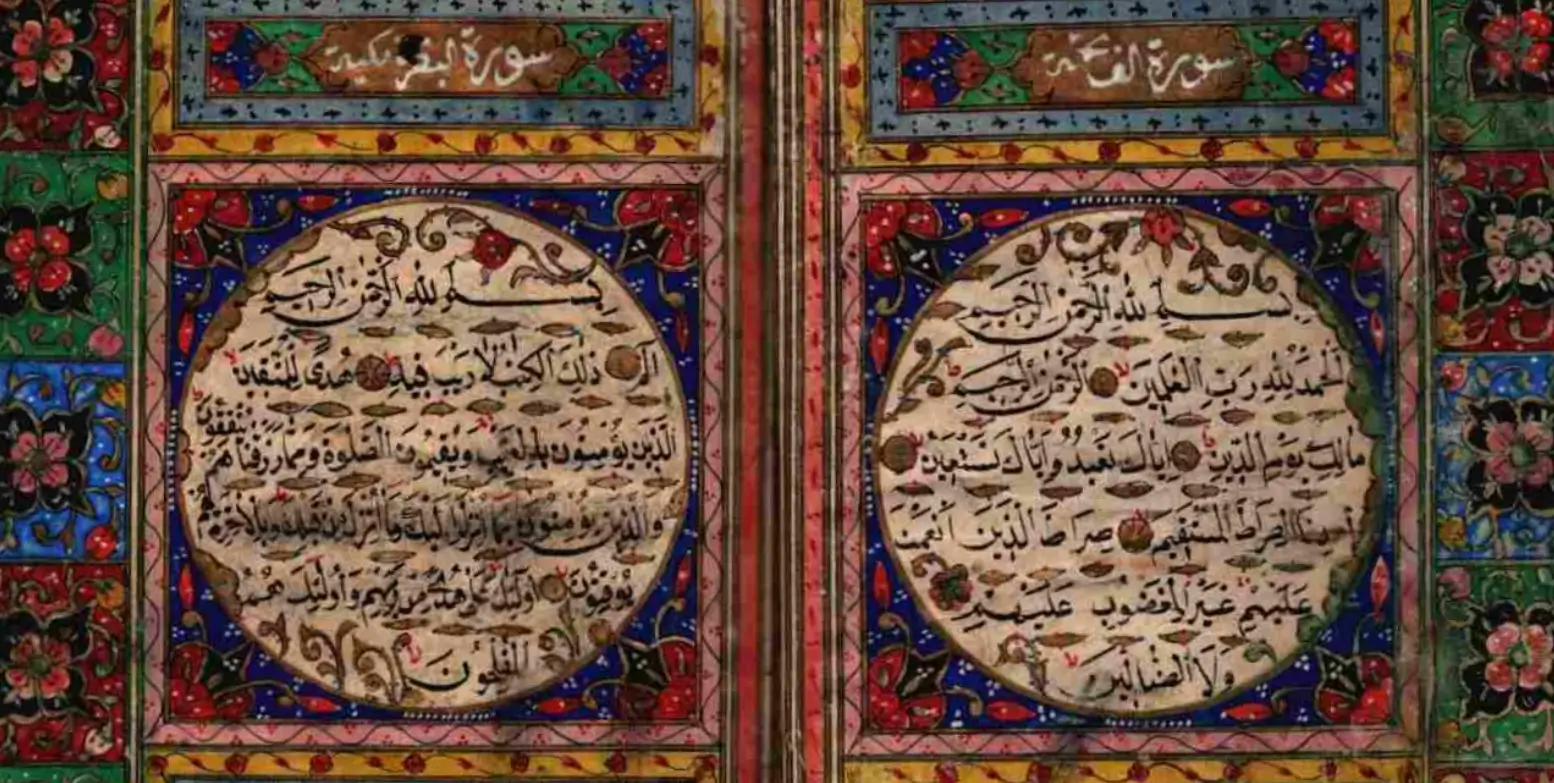 سورة الفاتحة
بسم الله الرحمن الرحيم
الحمد لله رب العلمين الرحمن الرحيم
مالك يوم الدين اياك نعبد واياك نستعين
اهدنا الصراط المستقيم صراط الذين انعمت
عليهم غير المغضوب عليهم
ولا الضالين
سورة البقرة مكية
بسم الله الرحمن الرحيم
الم ذلك الكتب لا ريب فيه هدى للمتقين
الذين يؤمنون بالغيب ويقيمون الصلوة ومما رزقناهم ينفقون
والذين يؤمنون بما انزل اليك وما انزل من قبلك وبالاخرة هم
يوقنون اولئك على هدى من ربهم واولئك هم
المفلحون